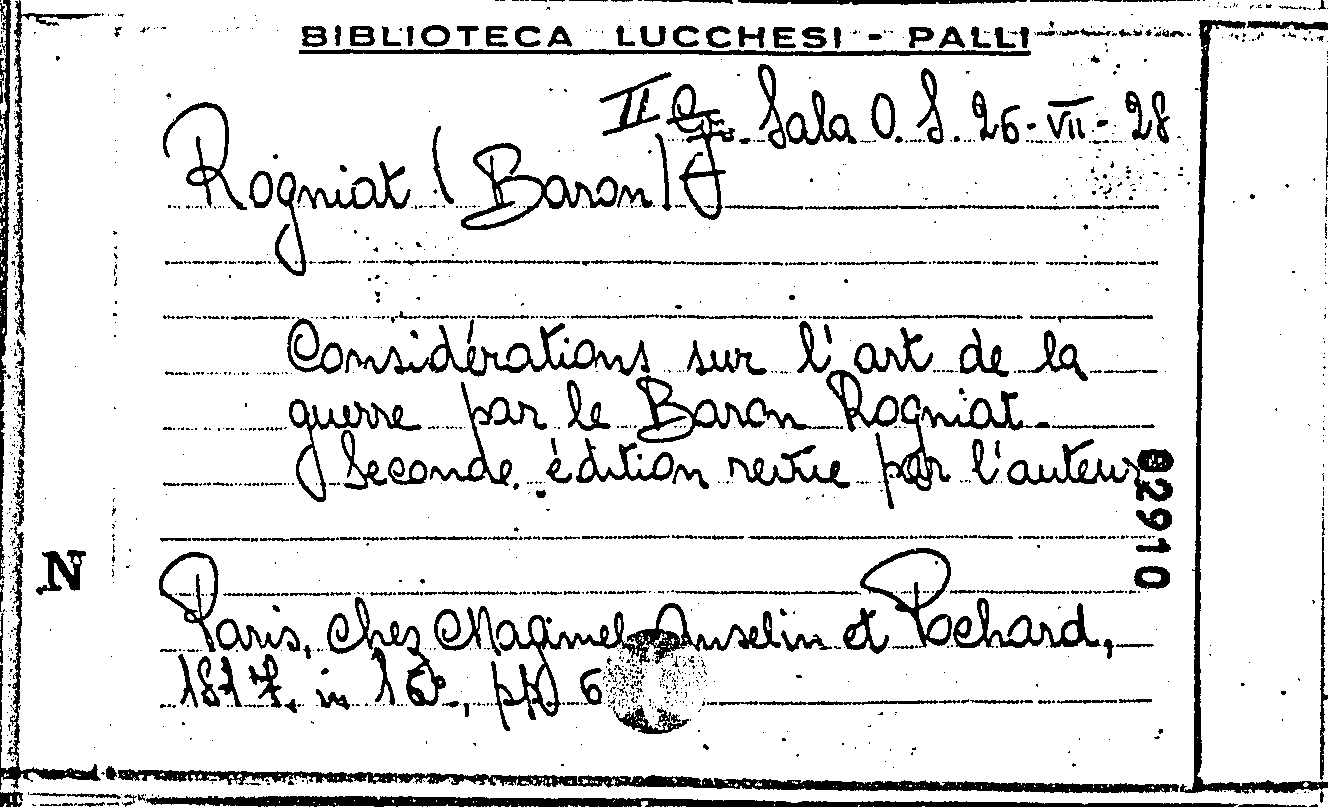 BIBLIOTECA LUCCHESI - PALLI
II Sala O. S. 26-VII-28
Rogniat (Baron) J
Considérations sur l'art de la
guerre par le Baron Rogniat.
Seconde édition revue par l'auteur
02910
N
Paris, chez Magimel Anselin et Pochard,
1817, in pp 6